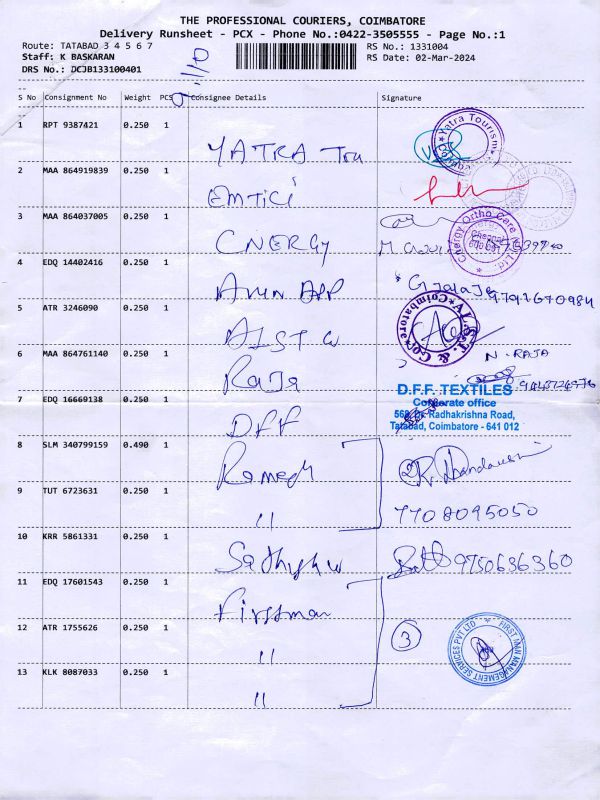 THE PROFESSIONAL COURIERS, COIMBATORE
Delivery Runsheet - PCX - Phone No.:0422-3505555 - Page No.:1
Route: TATABAD 3 4 5 6 7
RS No.: 1331004
Staff: K BASKARAN
RS Date: 02-Mar-2024
DRS No.: DCJB133100401
S No Consignment No Weight PCS Consignee Details Signature
1 RPT 9387421 0.250 1
YATRA Tou
Yatra Tourism
2 MAA 864919839 0.250 1
EMTICI
3 MAA 864037005 0.250 1
CNERGY
Cnergy Ortho Care
4 EDQ 14402416 0.250 1
Arun App
9791670984
5 ATR 3246090 0.250 1
AIST W
Coimbatore
6 MAA 864761140 0.250 1
Raja
N. RAJA
7 EDQ 16669138 0.250 1
DFF
D.F.F. TEXTILES
Corporate office
Radhakrishna Road,
Tatabad, Coimbatore - 641 012
8 SLM 340799159 0.490 1
Remedy
9 TUT 6723631 0.250 1
"
7708095050
10 KRR 5861331 0.250 1
9750636360
11 EDQ 17601543 0.250 1
Firstman
12 ATR 1755626 0.250 1
"
3
FIRST MAN MANAGEMENT SERVICES PVT LTD
13 KLK 8087033 0.250 1
"